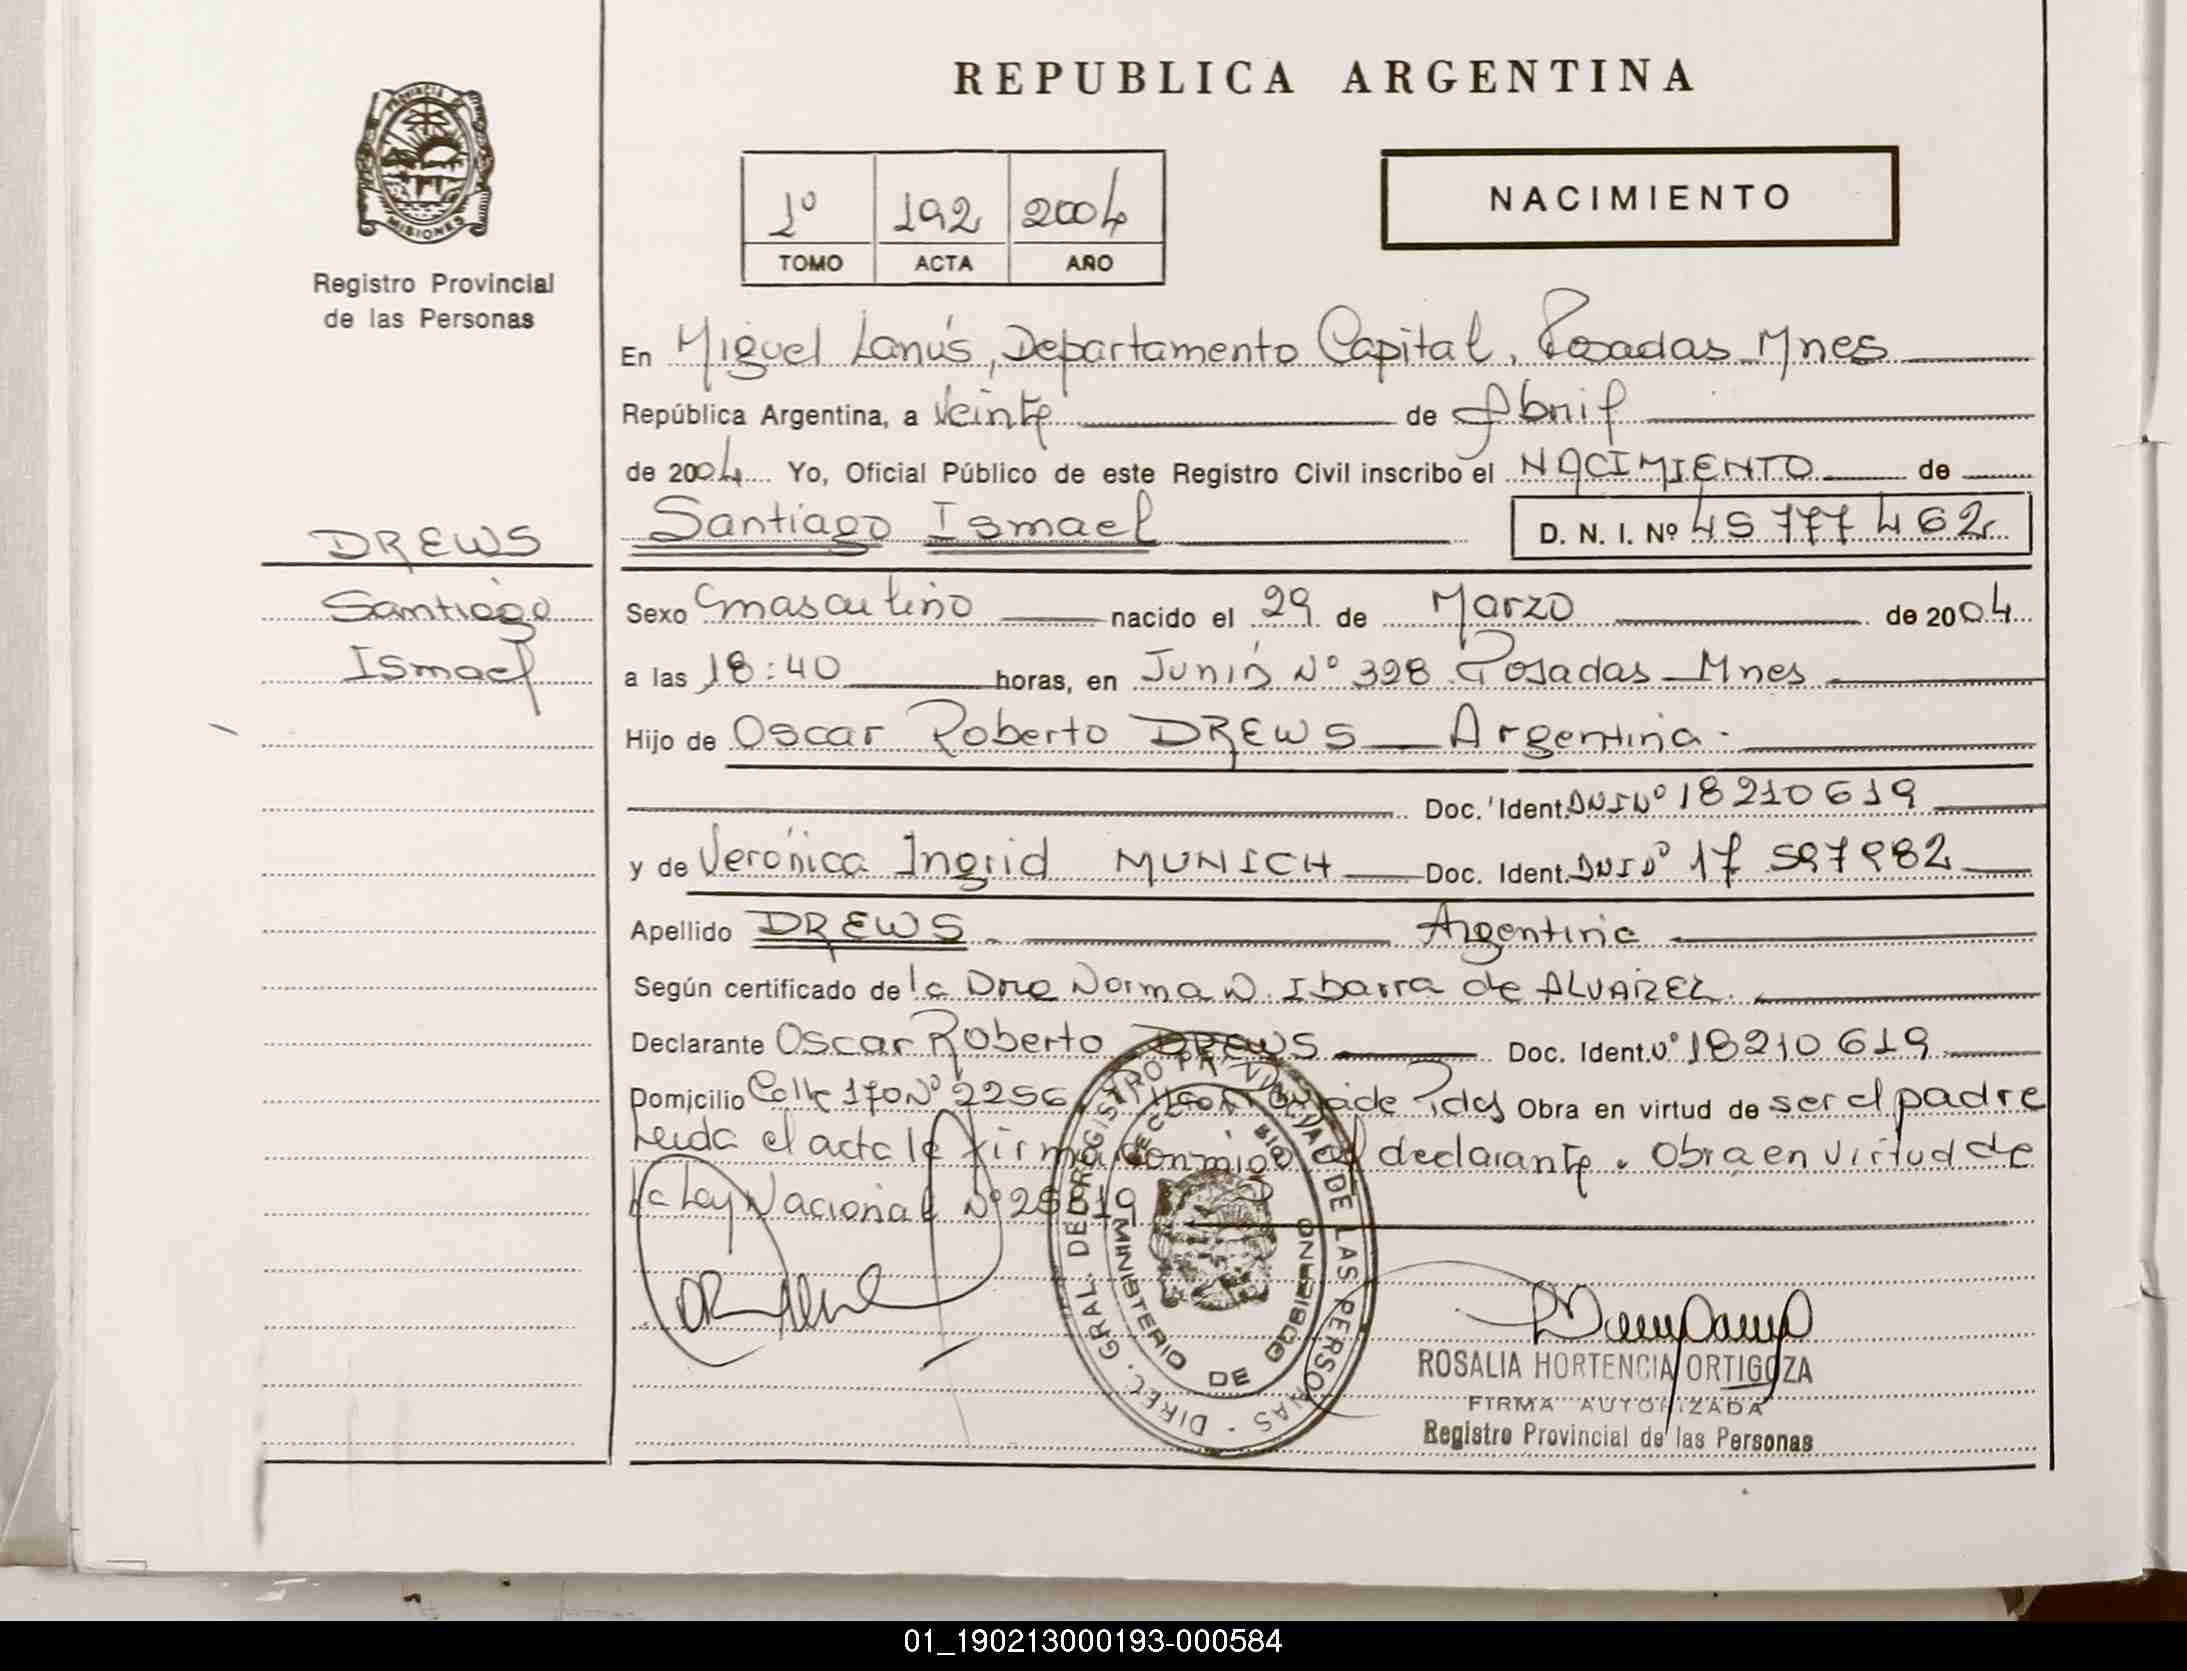 REPUBLICA ARGENTINA
PROVINCIA DE MISIONES
Registro Provincial
de las Personas
NACIMIENTO
1º 192 2004
TOMO ACTA AÑO
En Miguel Lanús, Departamento Capital, Posadas Mnes
República Argentina, a Veinte de Abril
de 2004 Yo, Oficial Público de este Registro Civil inscribo el NACIMIENTO de
DREWS
Santiago
Ismael
Santiago Ismael D. N. I. Nº 45 777 462
Sexo masculino nacido el 29 de Marzo de 2004
a las 18:40 horas, en Junín Nº 328 Posadas Mnes
Hijo de Oscar Roberto DREWS Argentina
Doc. Ident. DNI Nº 18210619
y de Verónica Ingrid MUNICH Doc. Ident. DNI Nº 17 597982
Apellido DREWS Argentina
Según certificado de la Dra Norma N. Ibarra de ALVAREZ
Declarante Oscar Roberto DREWS Doc. Ident. Nº 18210619
Domicilio Calle 170 Nº 2256 Pdas Obra en virtud de ser el padre
Leida el acta la firma conmigo el declarante. Obra en virtud de
la Ley Nacional Nº
DIREC. GRAL. DE REGISTRO PROVINCIAL DE LAS PERSONAS
MINISTERIO DE GOBIERNO
ROSALIA HORTENCIA ORTIGOZA
FIRMA AUTORIZADA
Registro Provincial de las Personas
01_190213000193-000584